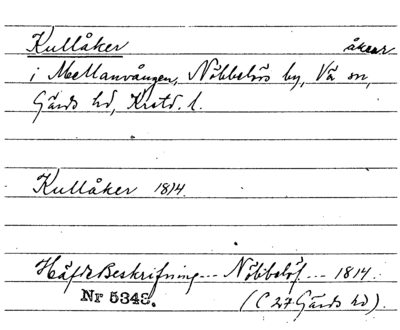 Kullåker åkrar
i Mellanvången, Nöbbelövs by, Vä sn,
Gärds hd, Kristd. l.
Kullåker 1814.
Häfde Beskrifning--- Nöbbelöf --- 1814.
Nr 5348. (C 27 Gärds hd).